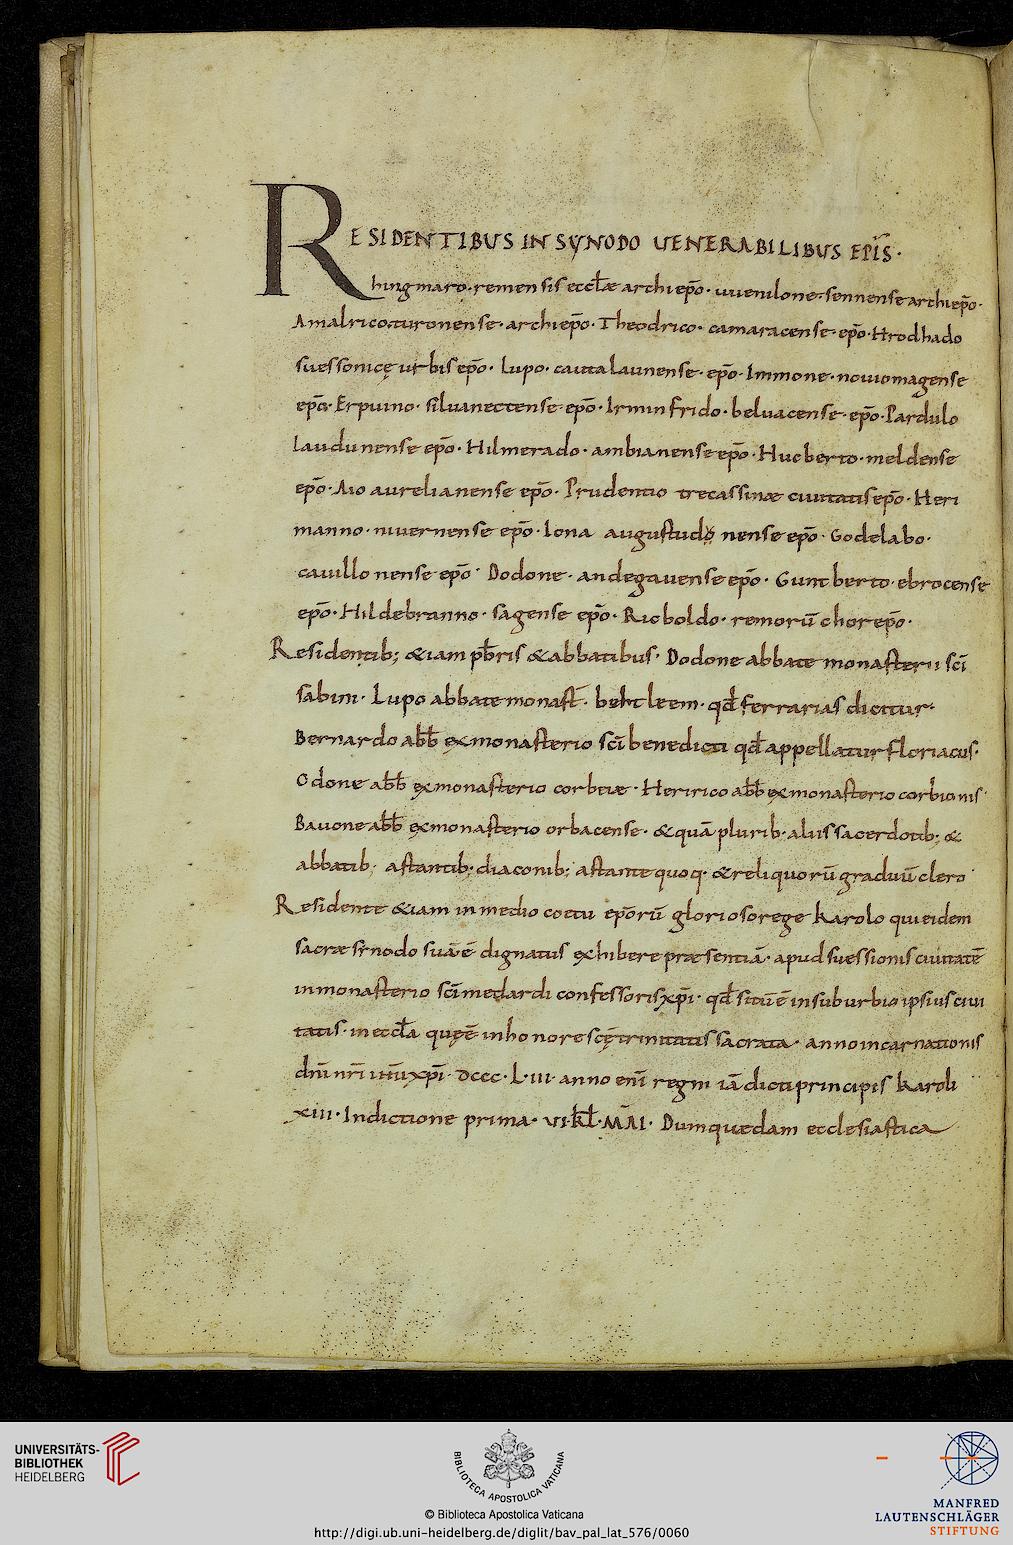 RESIDENTIBUS IN SYNODO UENERABILIBUS EPĪS·
hingmaro· remensis eccłae archiepō· uuenilone· sennense archiepō·
Amalrico· turonense· archiepō· Theodrico· camaracense· epō· Hrodhado
suessonicę urbis epō· Lupo· catalaunense· epō· Immone· nouiomagense
epō· Erpuino· siluanectense· epō· Irminfrido· beluacense· epō· Pardulo
laudunense epō· Hilmerado· ambianense epō· Hucberto· meldense
epō· Aio aurelianense epō· Prudentio trecassinae ciuitatis epō· Heri
manno· niuernense epō· Iona augustudo nense epō· Godelabo·
cauillonense epō· Dodone· andegauense epō· Guntberto· ebrocense
epō· Hildebranno· sagense epō· Ricboldo· remorū chorepō·
Residentib; &iam pb̄ris & abbatibus· Dodone abbate monasterii sc̄i
sabini· Lupo abbate monast̄· behtleem· qd̄ ferrarias dicitur·
Bernardo abb̄ ex monasterio sc̄i benedicti qd̄ appellatur floriacus·
Odone abb̄ ex monasterio corbeiæ· Heririco abb̄ ex monasterio corbionis·
Bauone abb̄ ex monasterio orbacense· & quā plurib· aliis sacerdotib; &
abbatib; astantib; diaconib; astante quoq· & reliquorū graduū clero
Residente &iam in medio coetu epōrū glorioso rege karolo qui eidem
sacræ sinodo suā ē dignatus exhibere præsentiā· apud suessionis ciuitatē
in monasterio sc̄i medardi confessoris xp̄i· qd̄ sitū ē in suburbio ipsius ciui
tatis· in eccła quę ē in honore scę trinitatis sacrata· anno incarnationis
dn̄i nr̄i ihū xp̄i· dccc· L· iii· anno enī regni iā dicti principis karoli
xiii· Indictione prima· vi· kł· MAI· Dum quædam ecclesiastica
UNIVERSITÄTS-
BIBLIOTHEK
HEIDELBERG
BIBLIOTECA APOSTOLICA VATICANA
© Biblioteca Apostolica Vaticana
http://digi.ub.uni-heidelberg.de/diglit/bav_pal_lat_576/0060
MANFRED
LAUTENSCHLÄGER
STIFTUNG